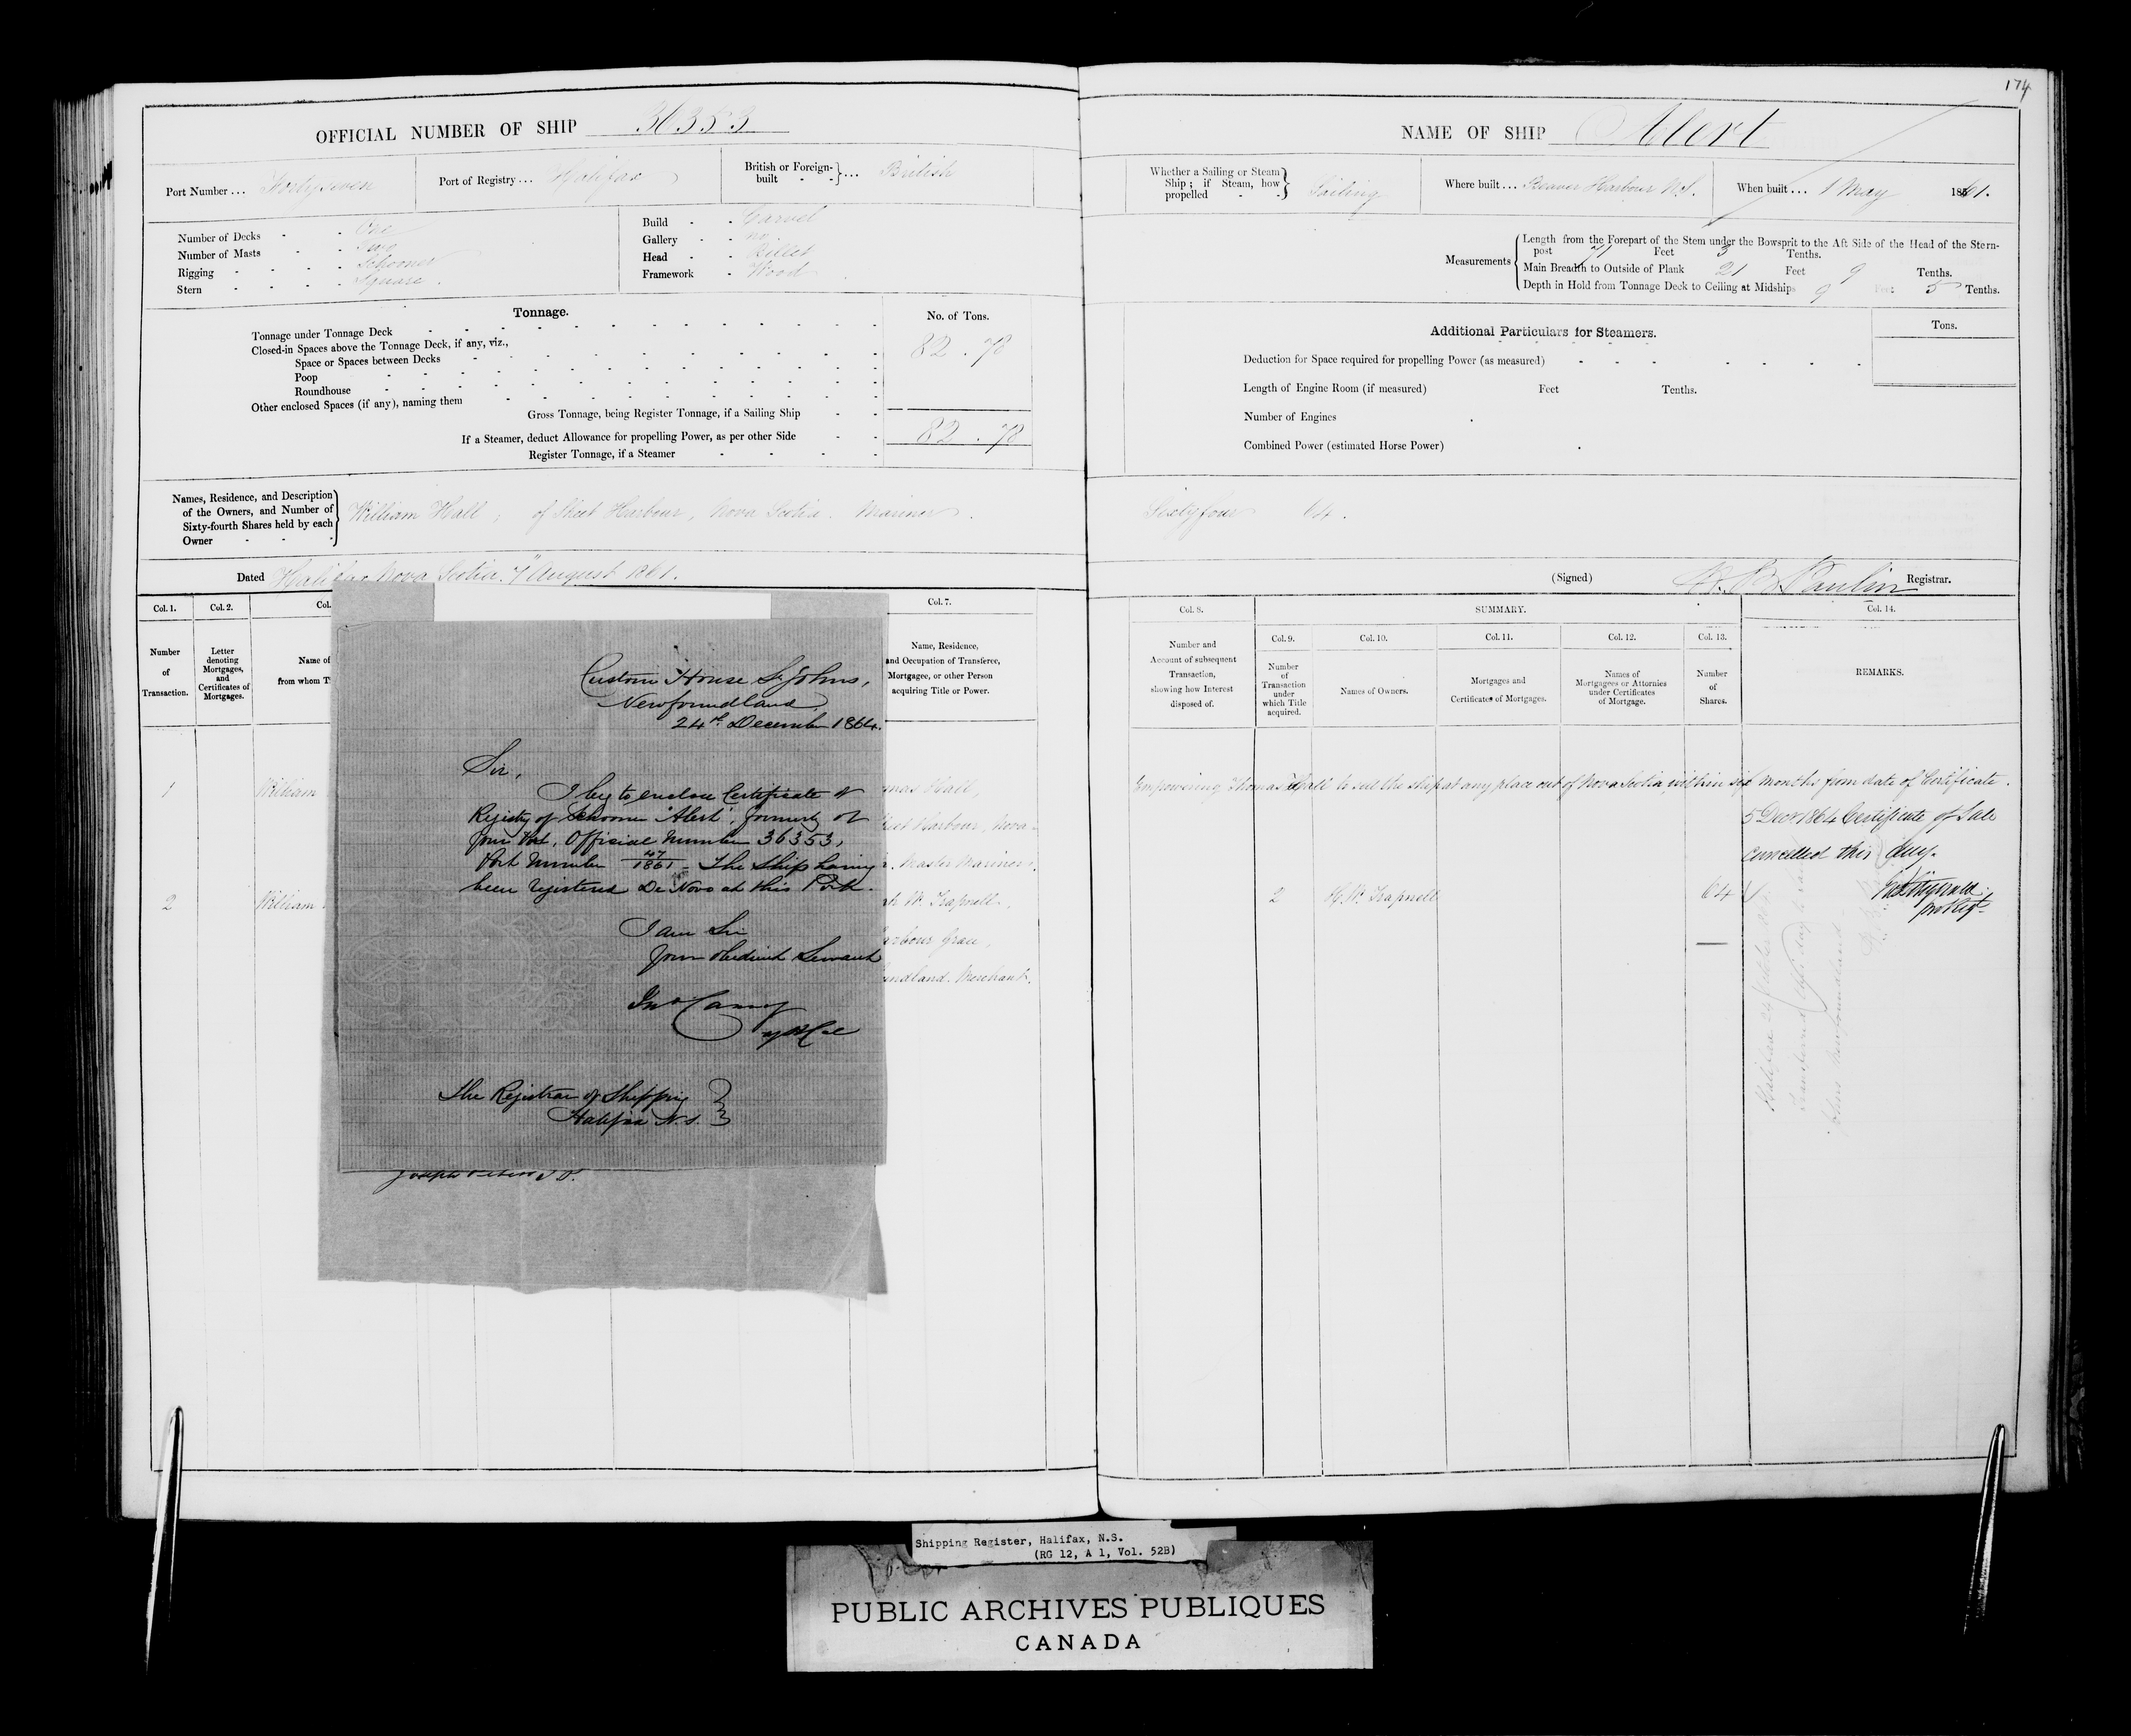 174
OFFICIAL NUMBER OF SHIP 36353
Port Number ... Forty seven
Port of Registry ... Halifax
British or Foreign-built ... British
Number of Decks - - One
Number of Masts - - Two
Rigging - - - - Schooner
Stern - - - - Square.
Build - - Carvel
Gallery - - no
Head - - Billet
Framework - Wood
Tonnage.
No. of Tons.
Tonnage under Tonnage Deck
82 . 78
Closed-in Spaces above the Tonnage Deck, if any, viz.,
Space or Spaces between Decks
Poop
Roundhouse
Other enclosed Spaces (if any), naming them
Gross Tonnage, being Register Tonnage, if a Sailing Ship
82 . 78
If a Steamer, deduct Allowance for propelling Power, as per other Side
Register Tonnage, if a Steamer
Names, Residence, and Description of the Owners, and Number of Sixty-fourth Shares held by each Owner
William Hall, of Sheet Harbour, Nova Scotia. Mariner.
Dated Halifax Nova Scotia. 7 August 1861.
Col. 1.
Col. 2.
Col.
Col. 7.
Number of Transaction.
Letter denoting Mortgages, and Certificates of Mortgages.
Name of
from whom T
Name, Residence, and Occupation of Transferee, Mortgagee, or other Person acquiring Title or Power.
1 William
mas Hall,
eet Harbour, Nova
Master Mariner.
2 William
W. Trapnell,
arbour Grace,
undland. Merchant.
Custom House St Johns,
Newfoundland.
24th December 1864.
Sir,
I beg to enclose Certificate of
Registry of Schooner "Alert", formerly of
your Port, Official Number 36353,
Port Number 47/1861 - The Ship having
been registered De Novo at this Port.
I am Sir
Your Obedient Servant
The Registrar of Shipping
Halifax N.S.
NAME OF SHIP Alert
Whether a Sailing or Steam Ship; if Steam, how propelled
Sailing
Where built ... Beaver Harbour N.S.
When built ... 1 May 1861.
Measurements
Length from the Forepart of the Stem under the Bowsprit to the Aft Side of the Head of the Stern-
post 71 Feet 3 Tenths.
Main Breadth to Outside of Plank 21 Feet 9 Tenths.
Depth in Hold from Tonnage Deck to Ceiling at Midships 9 Feet 5 Tenths.
Additional Particulars for Steamers.
Tons.
Deduction for Space required for propelling Power (as measured)
Length of Engine Room (if measured) Feet Tenths.
Number of Engines
Combined Power (estimated Horse Power)
Sixty four 64.
(Signed) Paulin Registrar.
Col. 8.
SUMMARY.
Col. 14.
Col. 9.
Col. 10.
Col. 11.
Col. 12.
Col. 13.
Number and Account of subsequent Transaction, showing how Interest disposed of.
Number of Transaction under which Title acquired.
Names of Owners.
Mortgages and Certificates of Mortgages.
Names of Mortgagees or Attornies under Certificates of Mortgage.
Number of Shares.
REMARKS.
Empowering Thomas Hall to sell the ship at any place out of Nova Scotia, within six months from date of Certificate.
5 Decr 1864 Certificate of Sale
cancelled this day.
2 H. W. Trapnell 64
Shipping Register, Halifax, N.S.
(RG 12, A 1, Vol. 52B)
PUBLIC ARCHIVES PUBLIQUES
CANADA